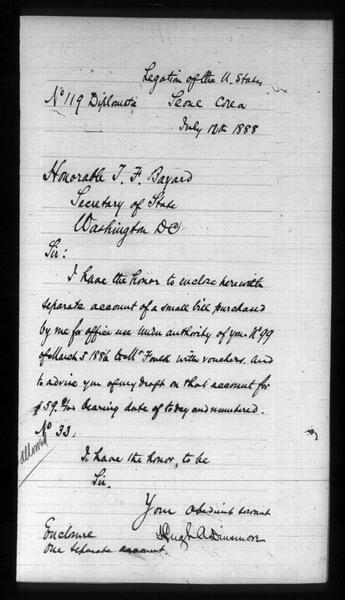 Legation of the U. States
No 119 Diplomatic Seoul Corea
July 12th 1888
Honorable T. F. Bayard
Secretary of State
Washington DC
Sir:
I have the honor to enclose herewith
separate account of a small bill purchased
by me for office use under authority of your No 99
of March 5 1886 to Mr Foulk with vouchers. and
to advise you of my draft on that account for
$59. bearing date of today and numbered.
No 33.
allowed
I have the honor, to be
Sir.
Your obedient servant
Hugh A Dinsmore
Enclosure
One separate account.